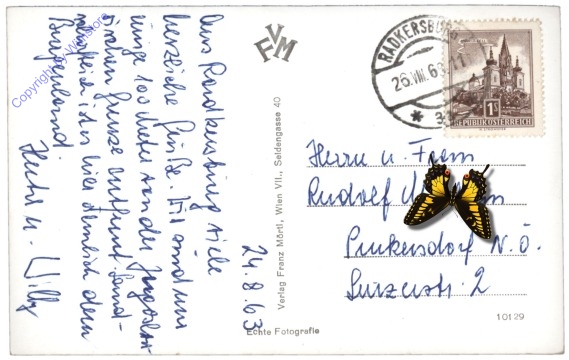 Aus Radkersburg viele
herzliche Grüße. Wir sind nur
einige 100 Meter von der
Grenze entfernt. Land-
ist hier ähnlich dem
Burgenland.
u. Willy
24.8.63
VFM
Verlag Franz Mörtl, Wien VII., Seidengasse 40
Echte Fotografie
RADKERSBURG
26.VIII.63
1 S
REPUBLIK ÖSTERREICH
Herrn u. Frau
Rudolf
Purkersdorf N.Ö.
2
10129
Copyright by